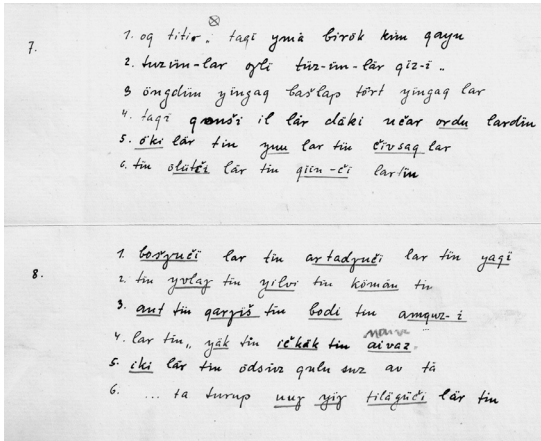 7.
1. og titir .. taqï ymä birök kim qayu
2. tuzün-lar oγli tüz-ün-lär qïz-ï ..
3 öngdün yïngaq bašlap tört yïngaq lar
4. taqï qonši il lär däki učar ordu lardïn
5. öki lär tin ynu lar tin čivsaq lar
6. tin ölütči lär tin qïïn-či lartin
8.
1. bošγučï lar tin artadγučï lar tin yaqï
2. tin yvlaq tin yilvi tin kömän tin
3. ant tin qarγïš tin bodi tin amquz-i
4. lar tin „ yäk tin ičkäk tin aivaz.
5. iki lär tin ödsüz qulu suz av ta
6. ... ta turup uuγ yiγ tilägüči lär tin